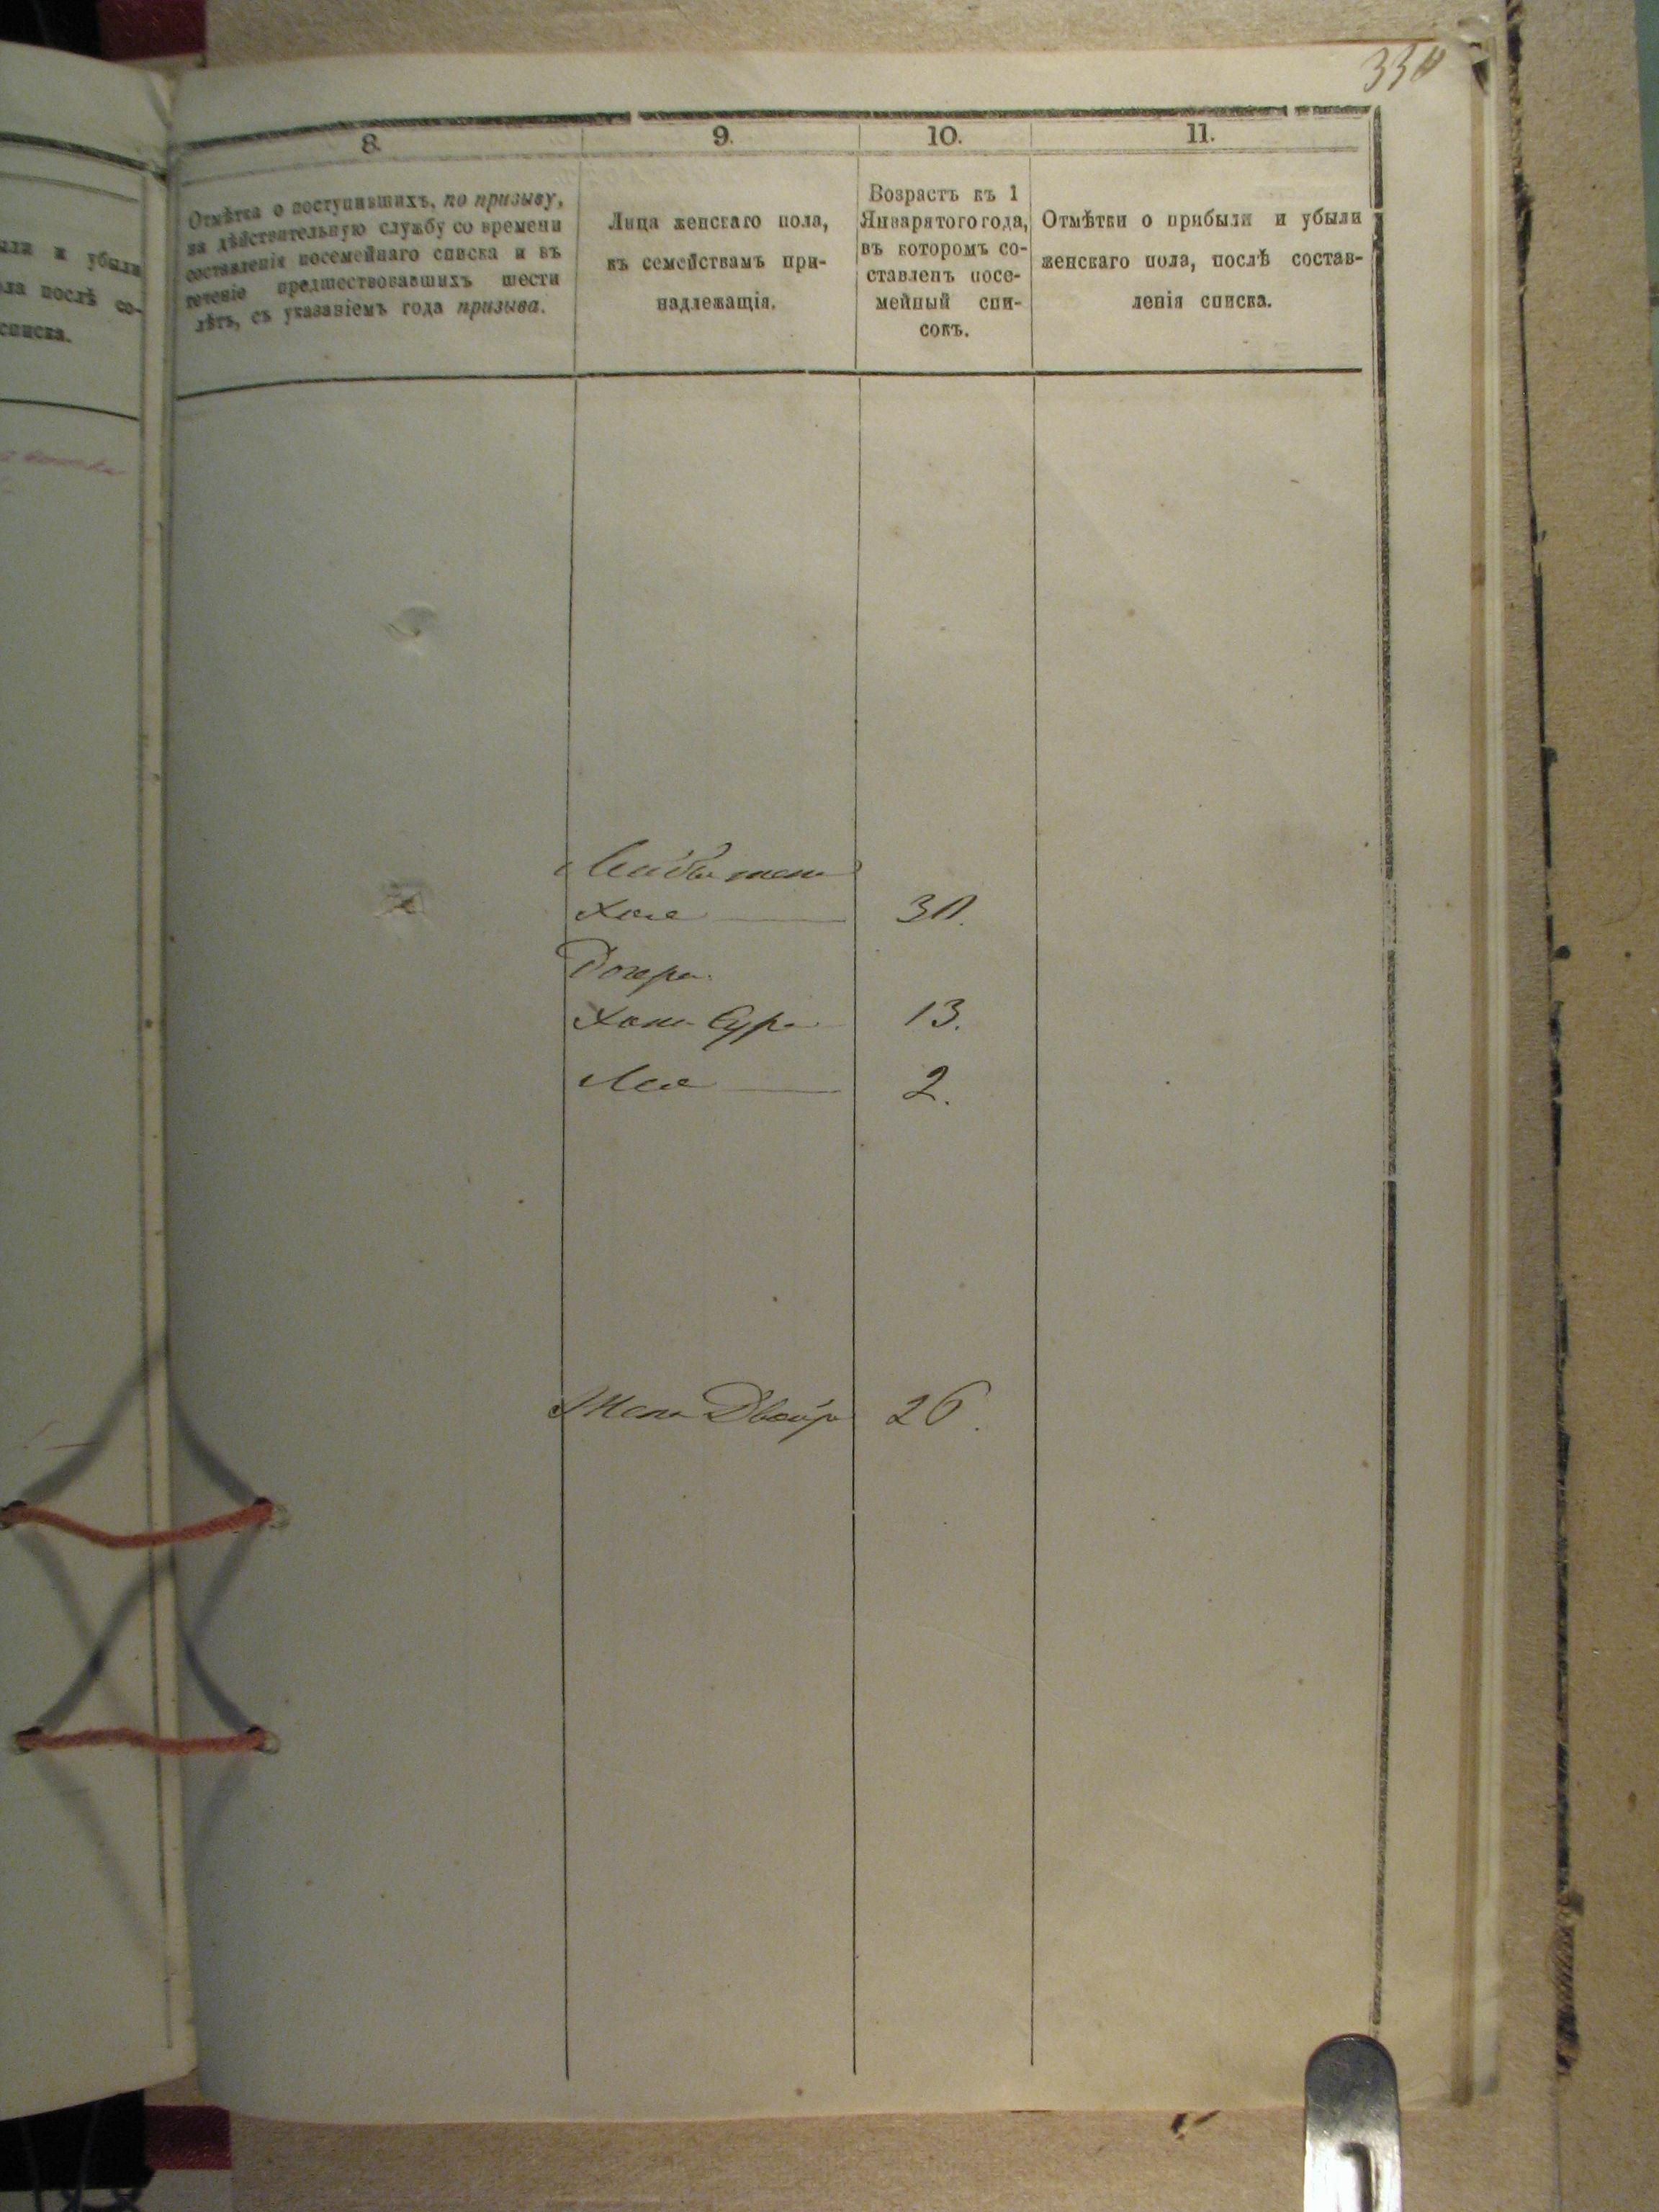 330
8.
9.
10.
11.
Отмѣтка о поступившихъ, по призыву,
на дѣйствительную службу со времени
составленія посемейнаго списка и въ
теченіе предшествовавшихъ шести
лѣтъ, съ указаніемъ года призыва.
Лица женскаго пола,
къ семействамъ при-
надлежащія.
Возрастъ къ 1
Января того года,
въ которомъ со-
ставленъ посе-
мейный спи-
сокъ.
Отмѣтки о прибыли и убыли
женскаго пола, послѣ состав-
ленія списка.
и убыли
послѣ со-
списка.
Лейбы жена
Хая 30.
Дочери
Хана Сура 13.
Лея 2.
Жена Двейра 26.